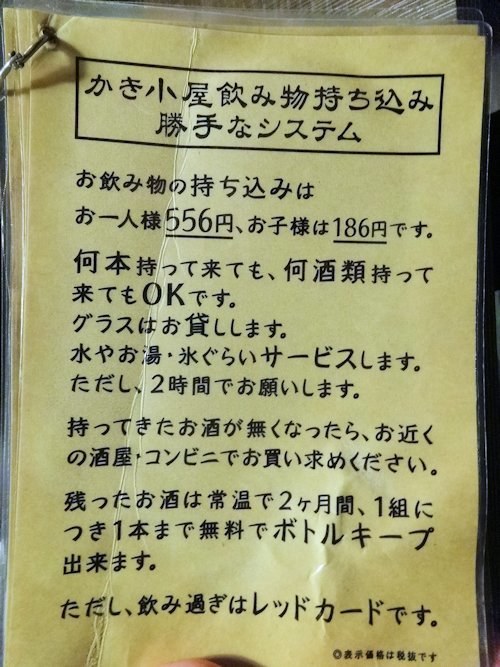 かき小屋飲み物持ち込み
勝手なシステム
お飲み物の持ち込みは
お一人様556円、お子様は186円です。
何本持って来ても、何酒類持って
来てもOKです。
グラスはお貸しします。
水やお湯・氷ぐらいサービスします。
ただし、2時間でお願いします。
持ってきたお酒が無くなったら、お近く
の酒屋・コンビニでお買い求めください。
残ったお酒は常温で2ヶ月間、1組に
つき1本まで無料でボトルキープ
出来ます。
ただし、飲み過ぎはレッドカードです。
◎表示価格は税抜です